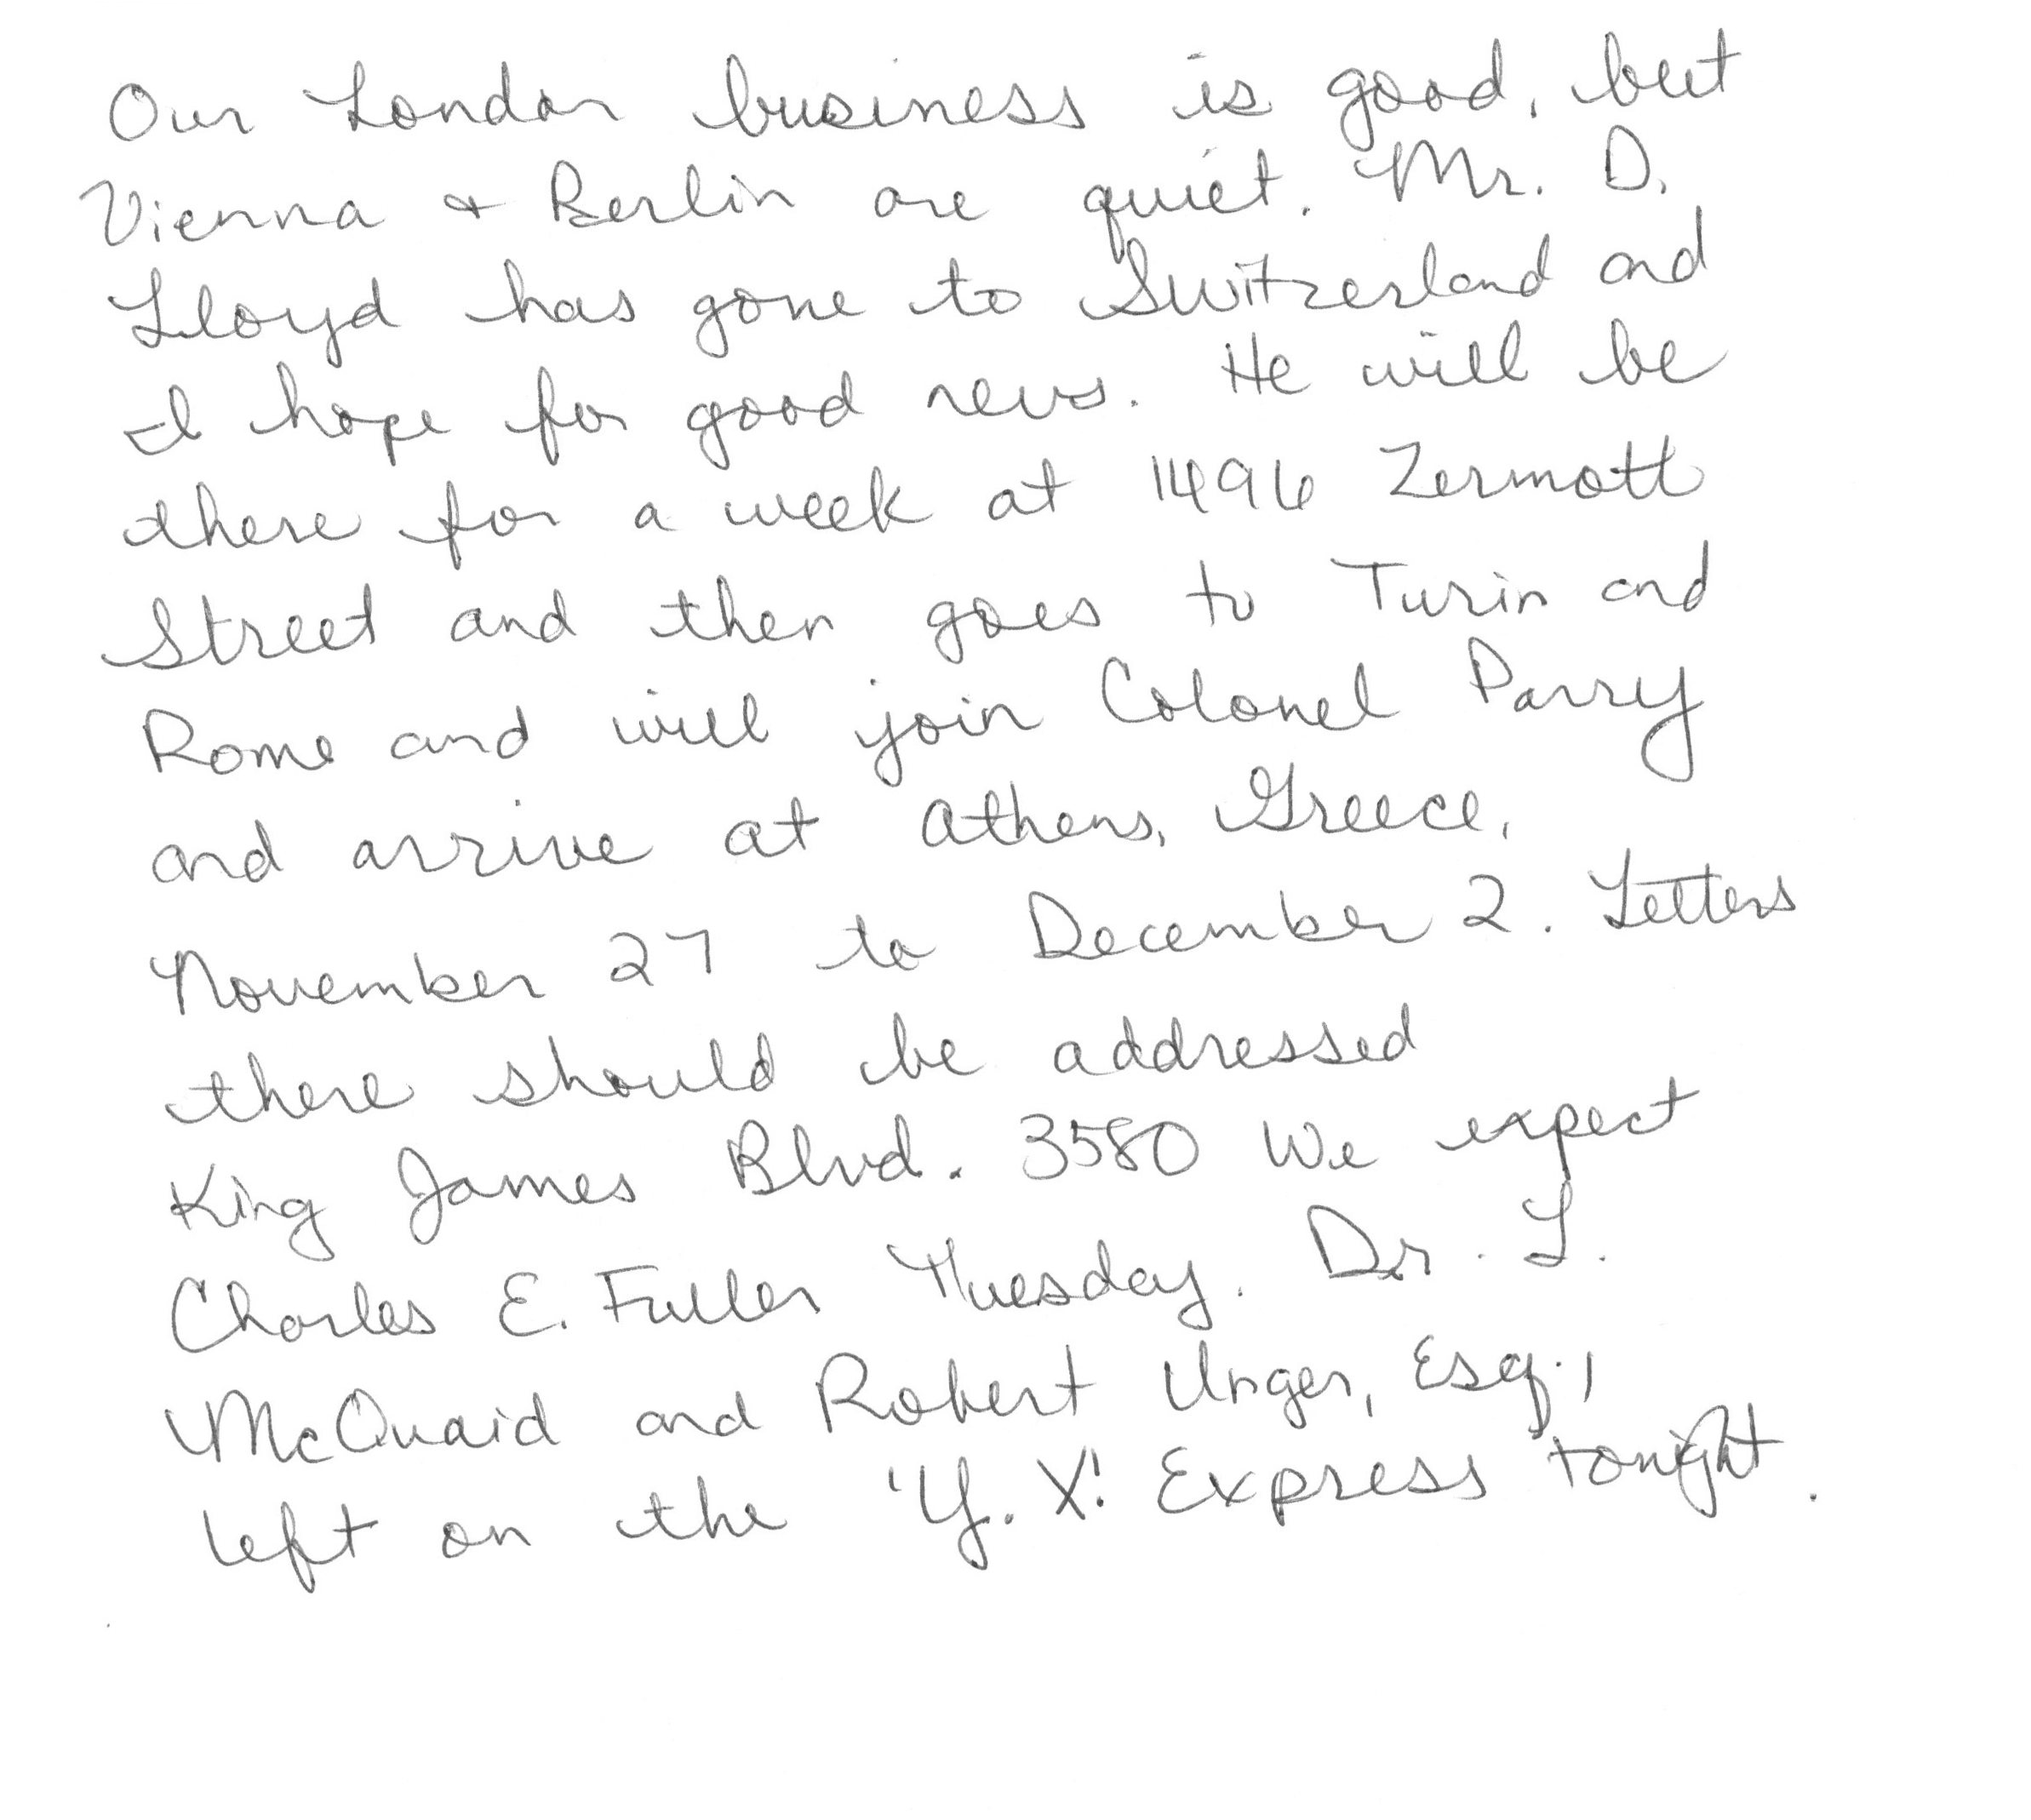 Our London business is good, but
Vienna + Berlin are quiet. Mr. D.
Lloyd has gone to Switzerland and
I hope for good news. He will be
there for a week at 1496 Zermott
Street and then goes to Turin and
Rome and will join Colonel Parry
and arrive at Athens, Greece,
November 27 to December 2. Letters
there should be addressed
King James Blvd. 3580 We expect
Charles E. Fuller Tuesday. Dr. L.
McQuaid and Robert Unger, Esq.,
left on the 'Y. X.' Express tonight.